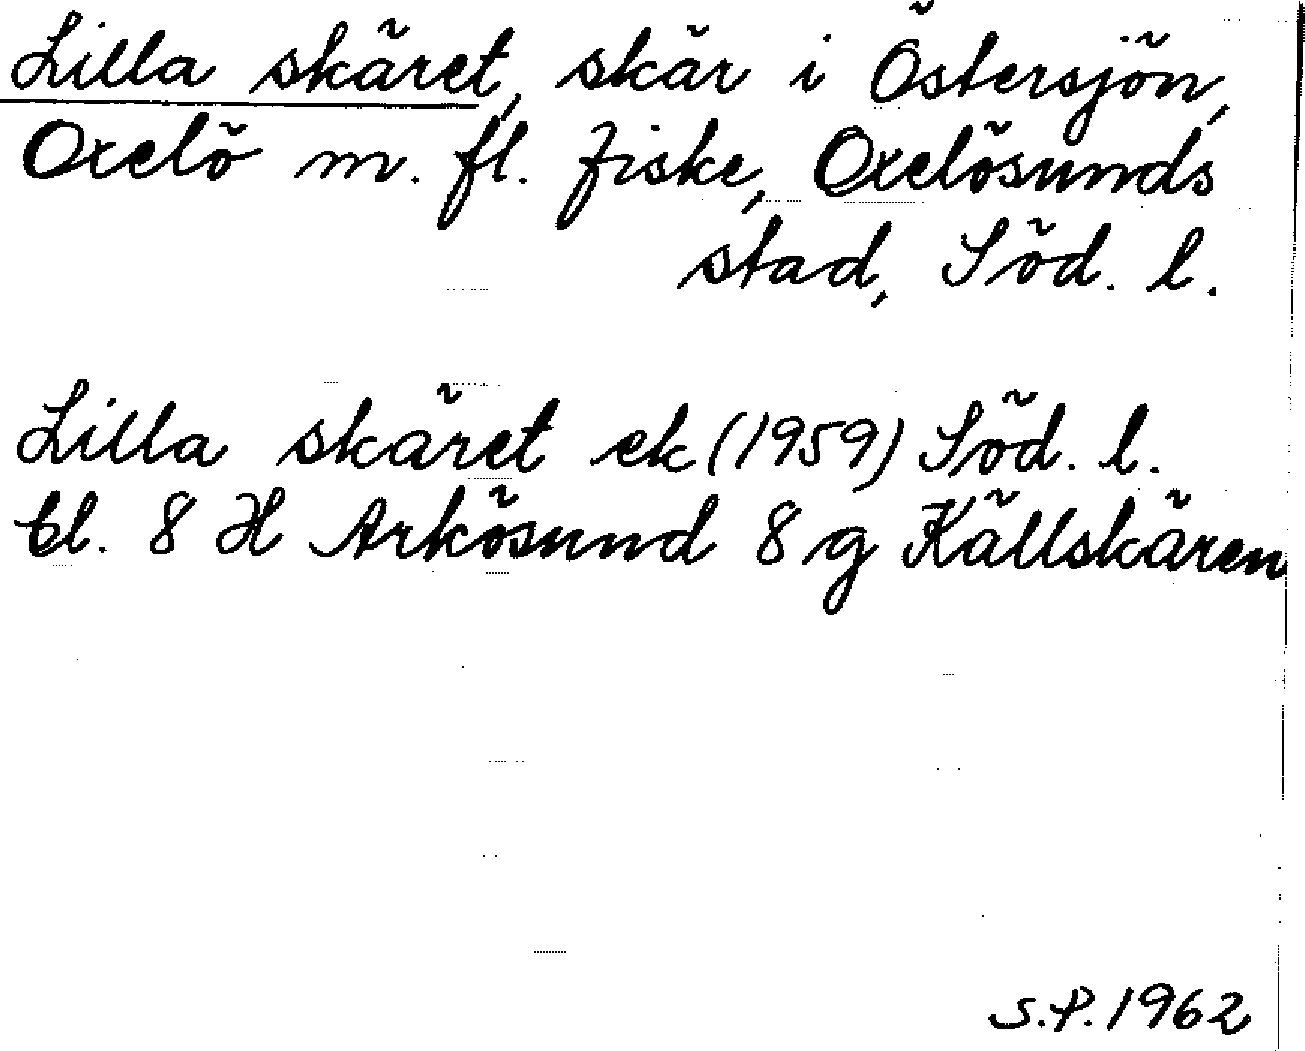 Lilla skäret, skär i Östersjön,
Oxelö m. fl. fiske, Oxelösunds
stad, Söd. l.
Lilla skäret ek (1959) Söd. l.
bl. 8 H Arkösund 8 g Källskären
S.P. 1962